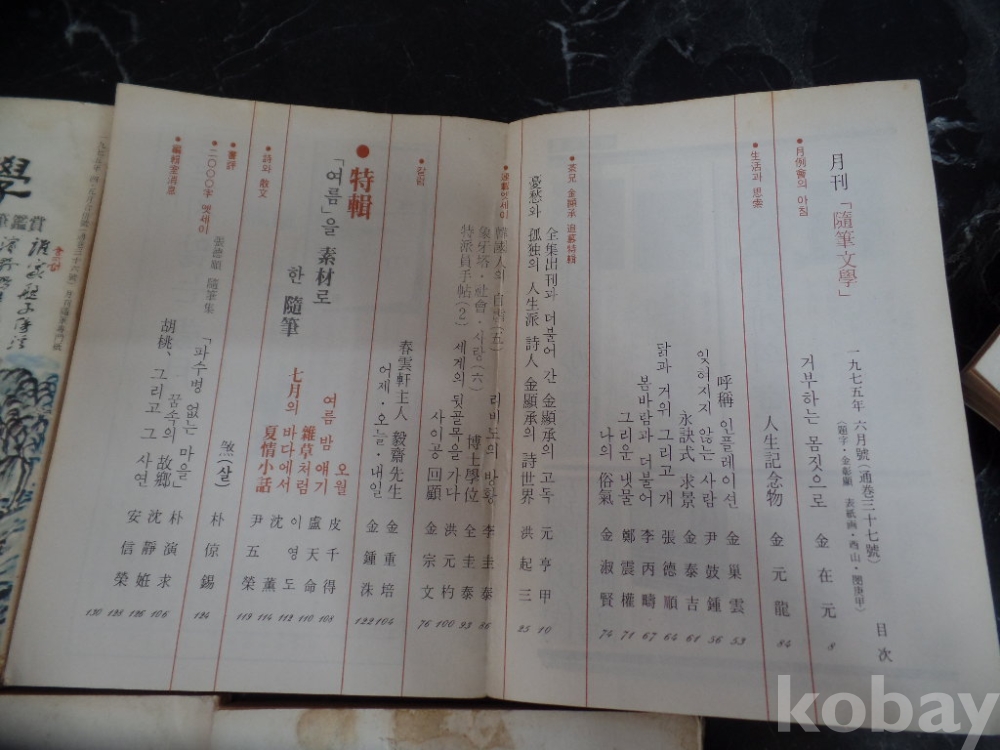 月刊「隨筆文學」
一九七五年 六月號(通巻三十七號)
(題字・金彰顯 表紙画・西山・閔庚甲)
目次
●月例會의 아침
거부하는 몸짓으로 金在元 8
人生記念物 金元龍 84
●生活과 思索
呼稱 인플레이션 金巢雲 53
잊혀지지 않는 사람 尹鼓鍾 56
永訣式 求景 金泰吉 61
닭과 거위 그리고 개 張德順 64
봄바람과 더불어 李丙疇 67
그리운 냇물 鄭震權 71
나의 俗氣 金淑賢 74
●茶兄 金顯承 追慕特輯
全集出刊과 더불어 간 金顯承의 고독 元亨甲 10
憂愁와 孤独의 人生派 詩人 金顯承의 詩世界 洪起三 25
●連載엣세이
自畵(五) 리비도의 방황 李圭泰 86
象牙塔・社會・사랑(六) 博士學位 全圭泰 93
特派員手帖(2) 세계의 뒷골목을 가다 洪元杓 100
사이공 回顧 金宗文 76
●칼럼
春雲軒主人 毅齋先生 金重培 104
어제・오늘・내일 金鍾洙 122
●特輯
「여름」을 素材로 한 隨筆
오월 皮千得 108
여름 밤 얘기 盧天命 110
雜草처럼 이영도 112
七月의 바다에서 沈薫 114
夏情小話 尹五榮 119
●詩와 散文
煞(살) 朴倞錫 124
●書評
張德順 隨筆集
「파수병 없는 마을」 朴演求 106
●二〇〇〇字 엣세이
꿈속의 故鄉 沈靜姙 126
胡桃、그리고 그 사연 安信榮 128
●編輯室消息 130
學
賞鑑筆
kobay